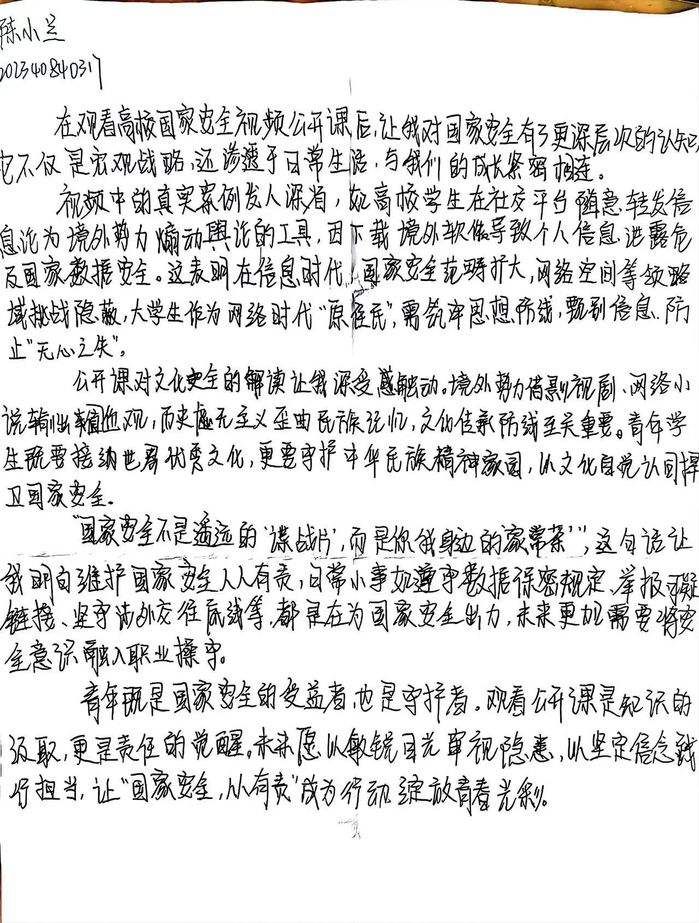 陈小兰
202340840317
在观看高校国家安全视频公开课后,让我对国家安全有了更深层次的认知,
它不仅是宏观战略,还渗透于日常生活,与我们的成长紧密相连。
视频中的真实案例发人深省,如高校学生在社交平台随意转发信
息沦为境外势力煽动舆论的工具,因下载境外软件导致个人信息泄露危
及国家数据安全。这表明在信息时代,国家安全范畴扩大,网络空间等领
域挑战隐蔽,大学生作为网络时代“原住民”,需筑牢思想防线,甄别信息、防
止“无心之失”。
公开课对文化安全的解读让我深受感触动。境外势力借影视剧、网络小
说输出价值观,历史虚无主义歪曲民族记忆,文化传承防线至关重要。青年学
生既要接纳世界优秀文化,更要守护中华民族精神家园,以文化自觉认同捍
卫国家安全。
“国家安全不是遥远的‘谍战片’,而是你我身边的‘家常菜’”,这句话让
我明白维护国家安全人人有责,日常小事如遵守数据保密规定、举报可疑
链接、坚守涉外交往底线等,都是在为国家安全出力,未来更加需要将安
全意识融入职业操守。
青年既是国家安全的受益者,也是守护者。观看公开课是知识的
汲取,更是责任的觉醒。未来愿以敏锐目光审视隐患,以坚定信念践
行担当,让“国家安全,人人有责”成为行动绽放青春光彩。